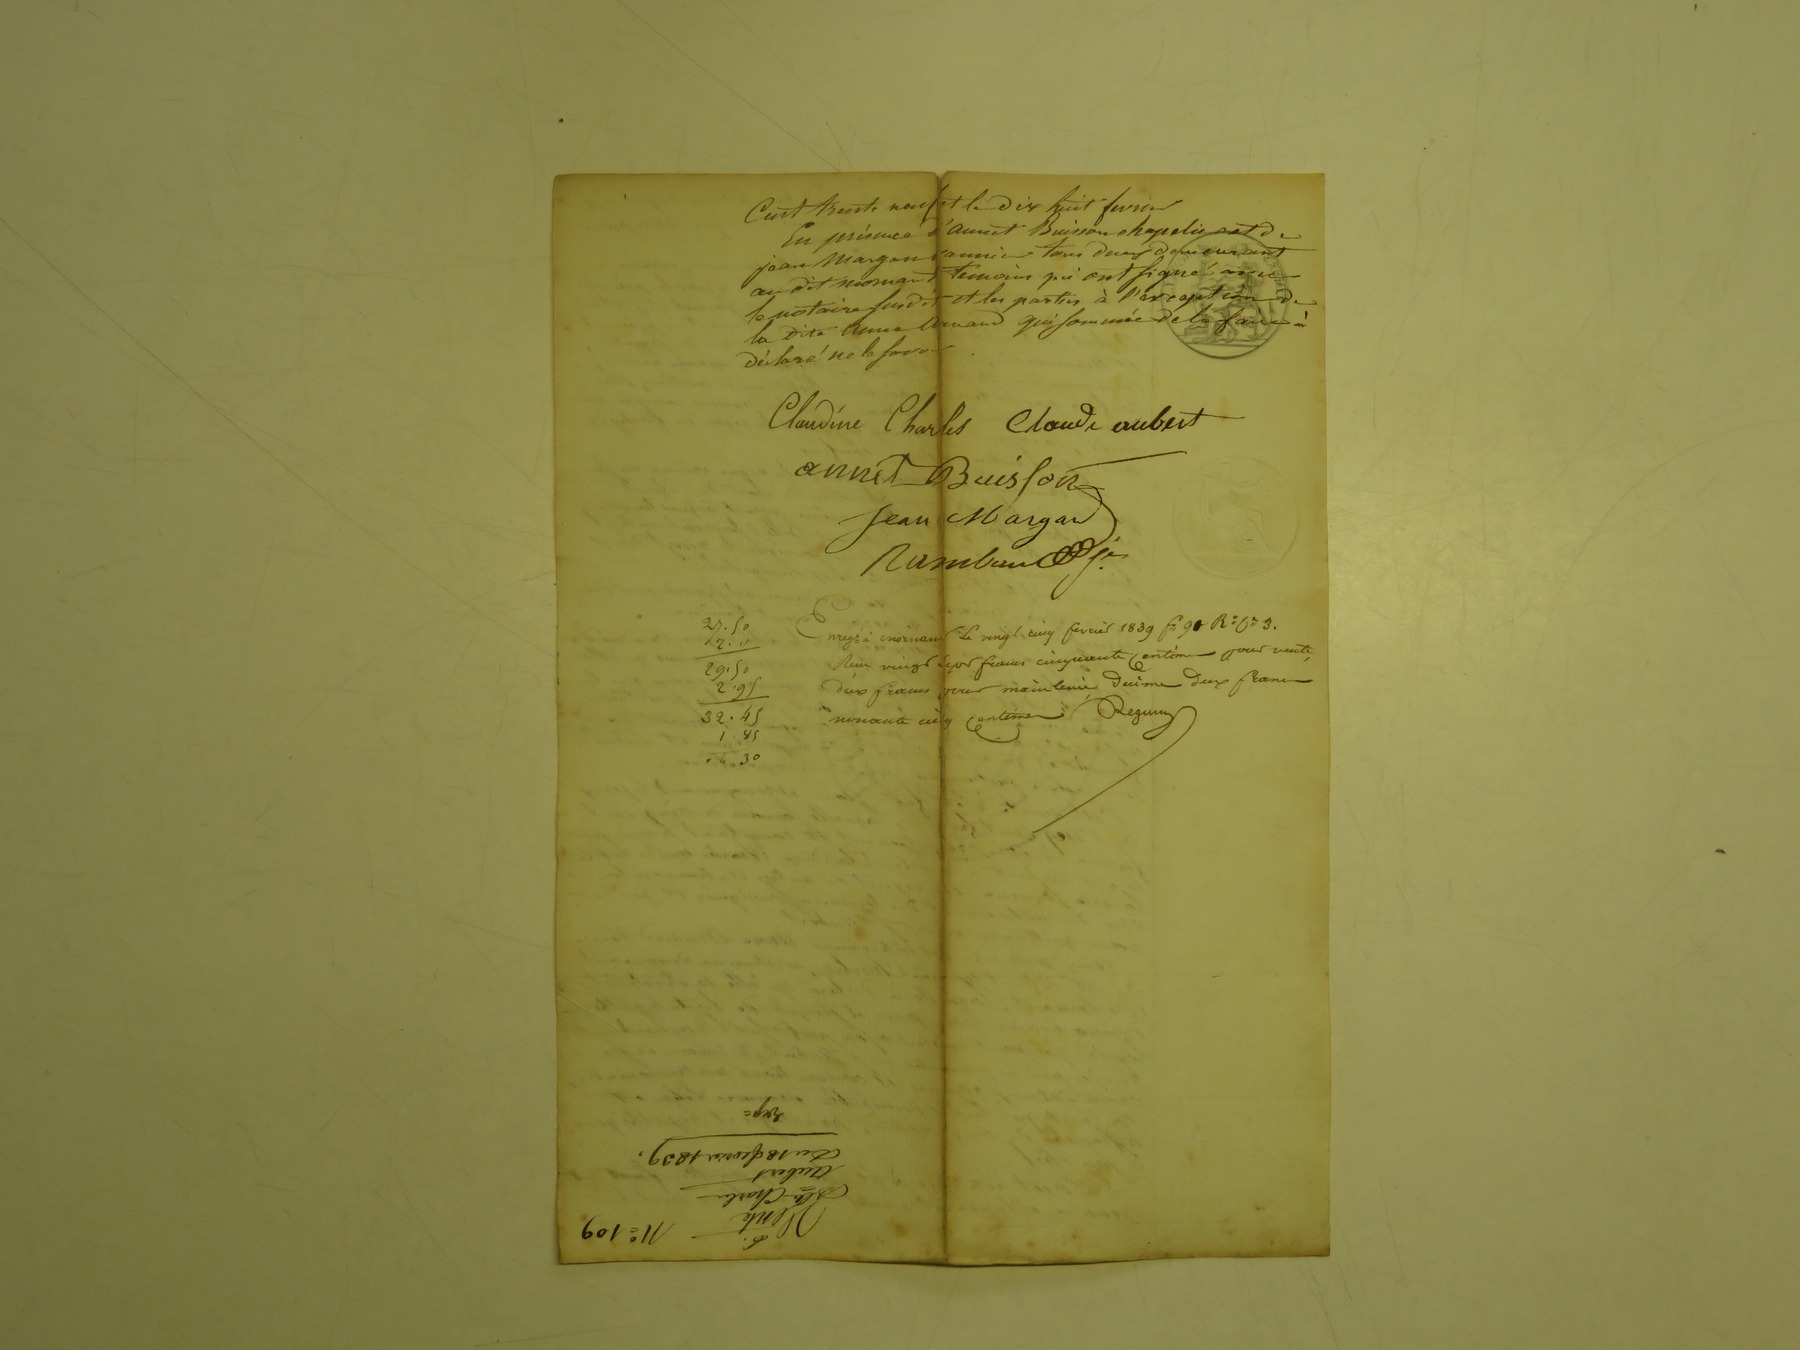 Cent trente neuf et le dix huit fevrier
En présence d'annet Buisson chapelier et de
jean Margan tous deux demeurant
au dit mornant temoins qui ont signé avec
le notaire susdit et les parties à l'exception de
la dite anne qui sommée de le faire à
déclaré ne le savoir
Claudine Charles Claude aubert
annet Buisson
Jean Margan
Rambaud
27.50
2. "
29.50
2.95
32.45
1 85
34.30
Enregé à mornant le vingt cinq fevrier 1839 fo 90 Ro Ce 3.
Reçu vingt sept francs cinquante centimes pour vente,
deux francs pour mainlevée, decime deux francs
nonante cinq centimes
No 109
Vente
Charles
Aubert
Du 18 fevrier 1839.